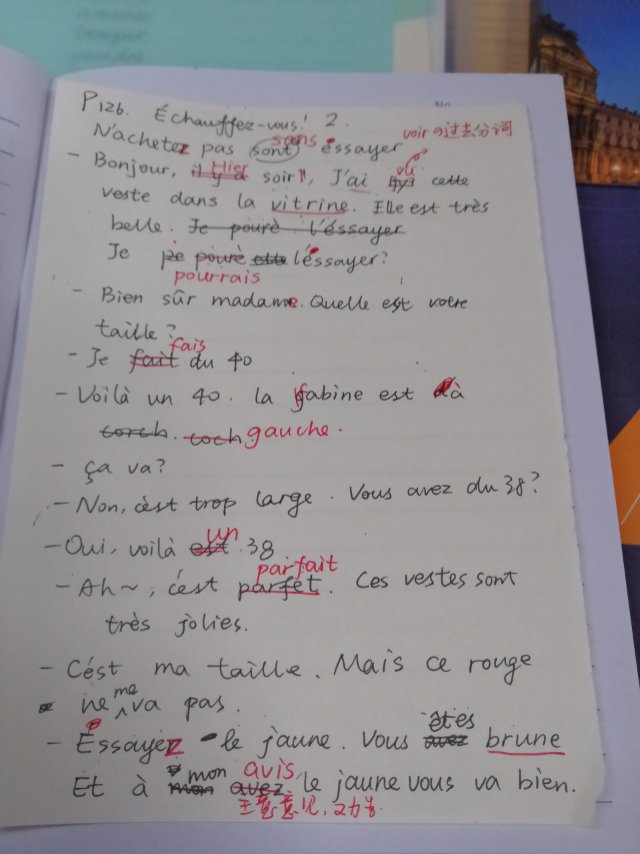 P126. Échauffez-vous! 2.
N'achetez pas sans éssayer
voir の过去分词
- Bonjour, Hier soir, J'ai vu cette
veste dans la vitrine. Elle est très
belle. Je pourè l'éssayer
Je pourrais l'éssayer?
- Bien sûr madame. Quelle est votre
taille?
- Je fais du 40
- Voilà un 40. la cabine est à
gauche.
- Ça va?
- Non, c'est trop large. Vous avez du 38?
- Oui, voilà un 38
- Ah~, c'est parfait. Ces vestes sont
très jolies.
- C'ést ma taille. Mais ce rouge
ne me va pas.
- Essayez le jaune. Vous êtes brune
Et à mon avis, le jaune vous va bien.